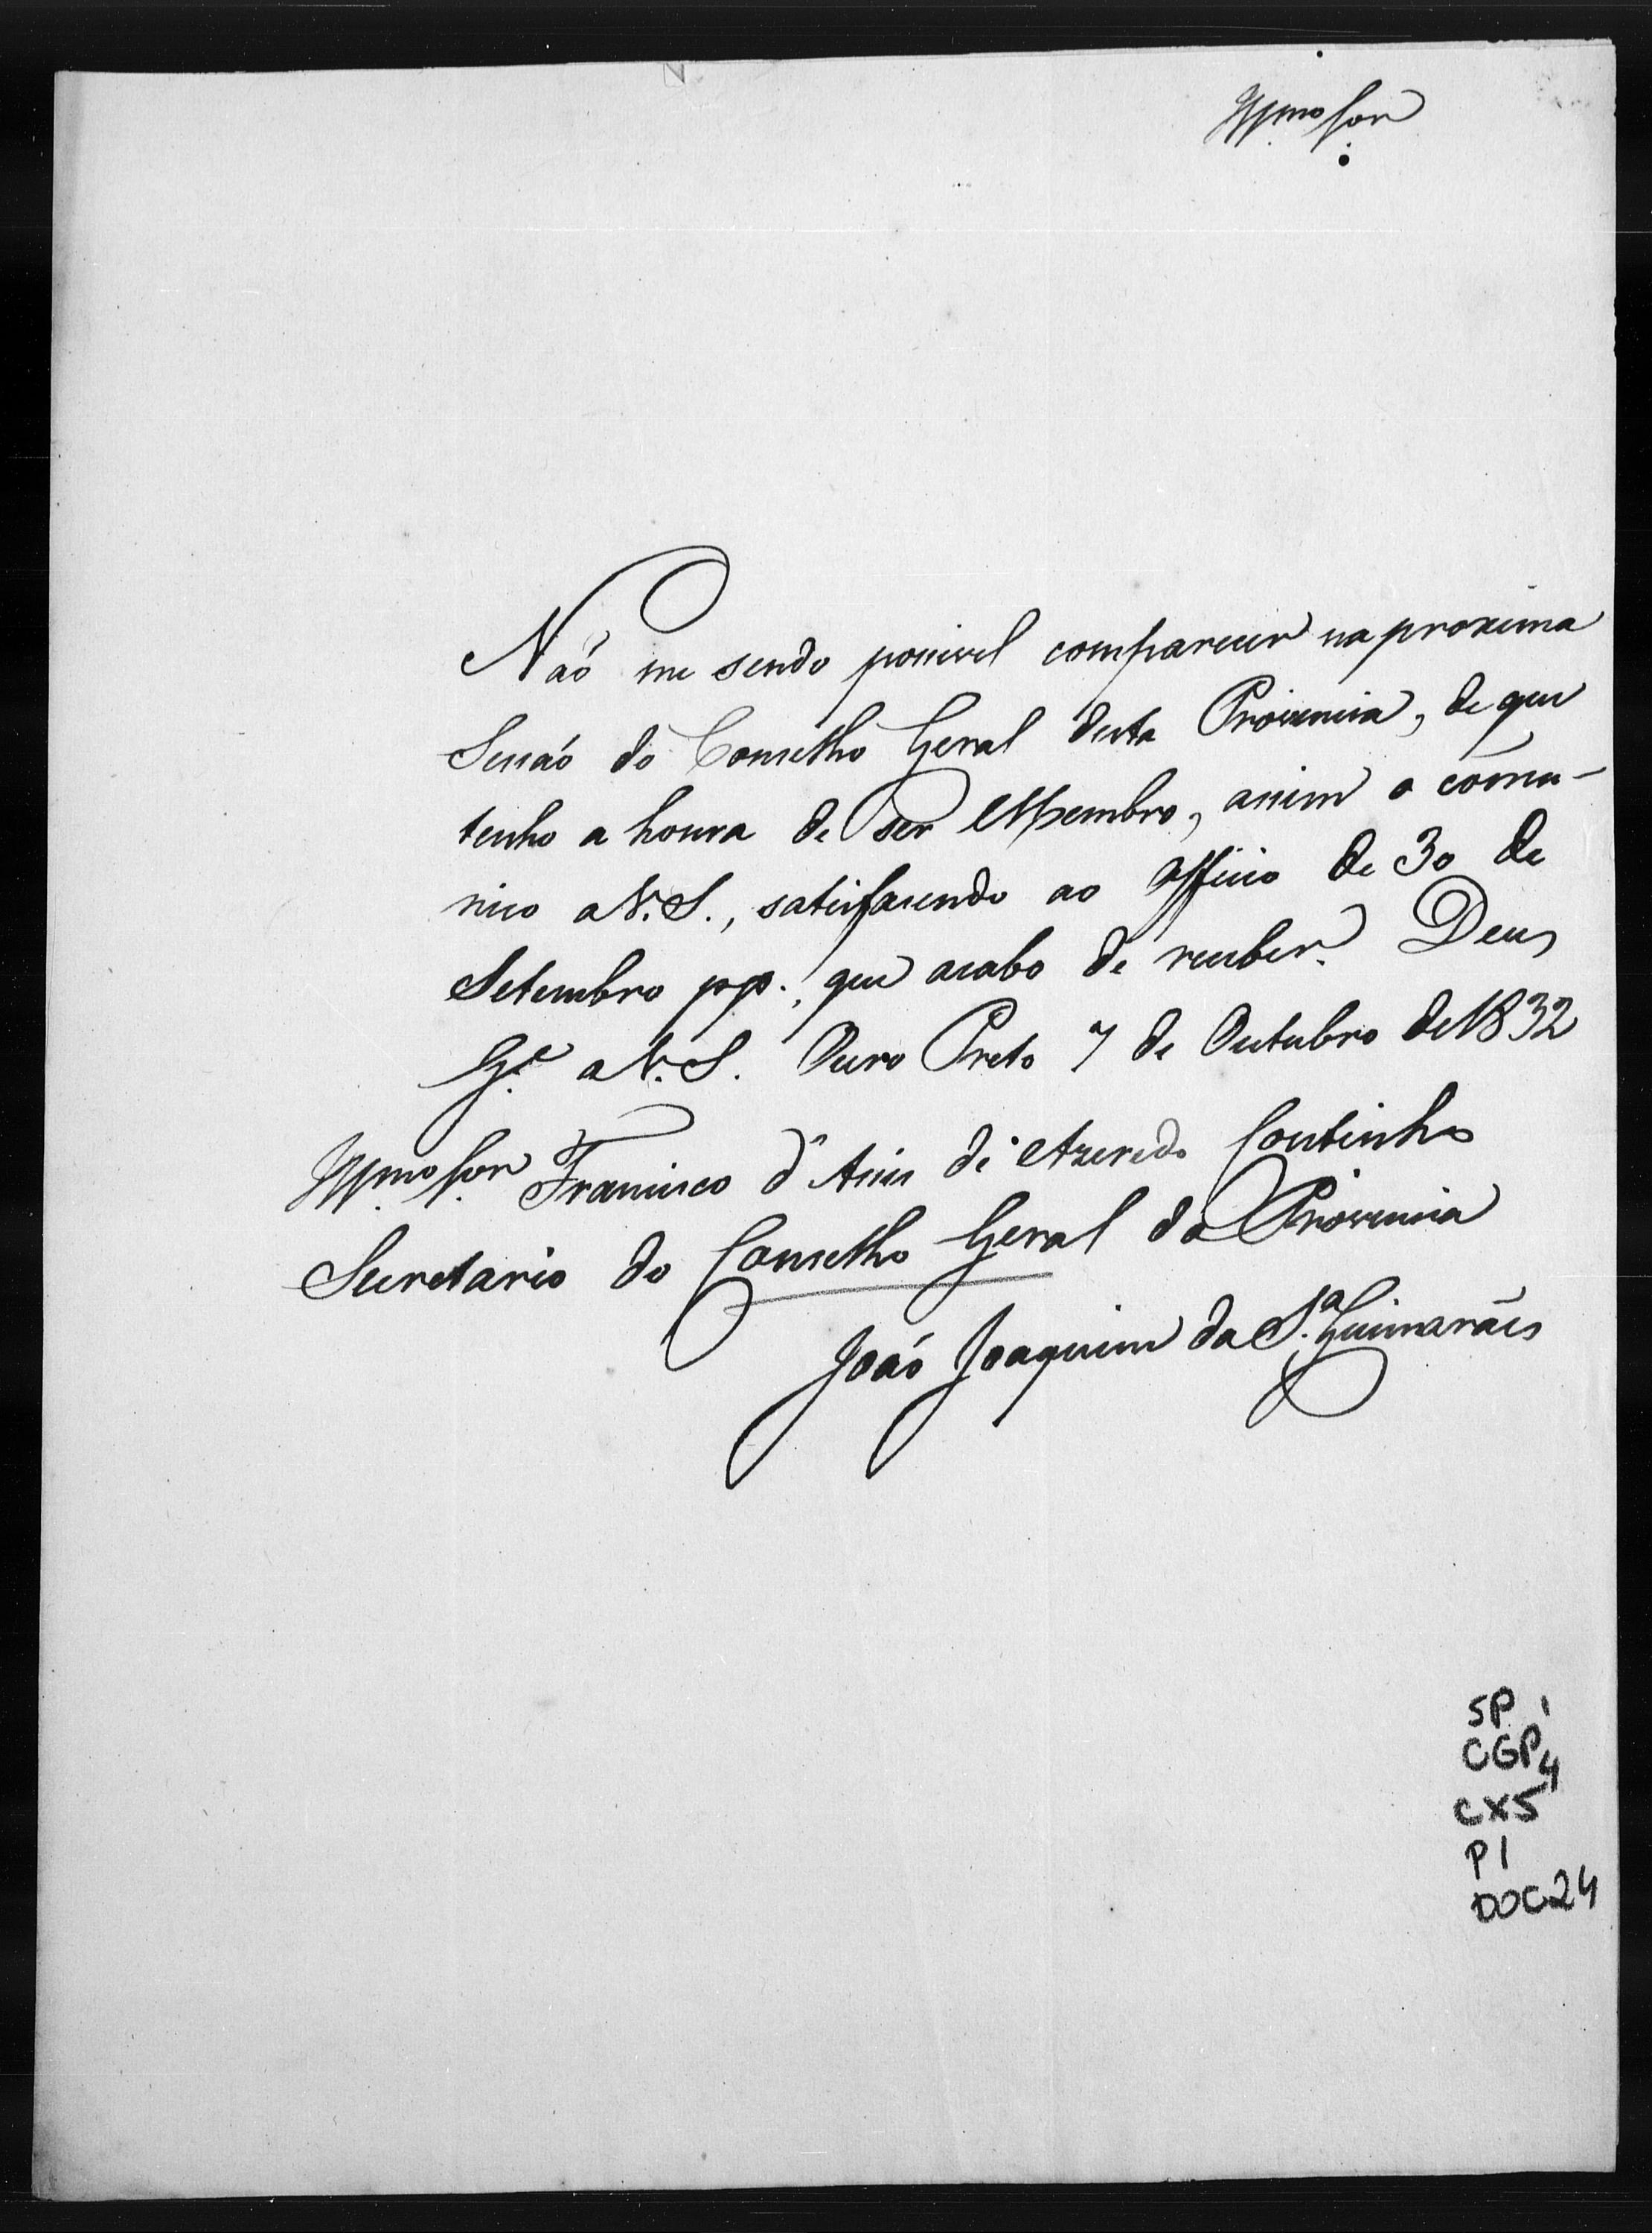 Illmo Snr
Naó me sendo possivel comparecer na proxima
Sessaó do Conselho Geral desta Provincia, de que
tenho a honra de ser Membro, assim o comu-
nico a V. S., satisfazendo ao Officio de 30 de
Setembro pp., que acabo de receber. Deus
G.e a V. S. Ouro Preto 7 de Outubro de 1832
Illmo Snr Francisco d'Assis de Azeredo Coutinho
Secretario do Conselho Geral da Provincia
Joaó Joaquim da S.a Guimarães
SP 1
CGP 4
CX5
P1
DOC24